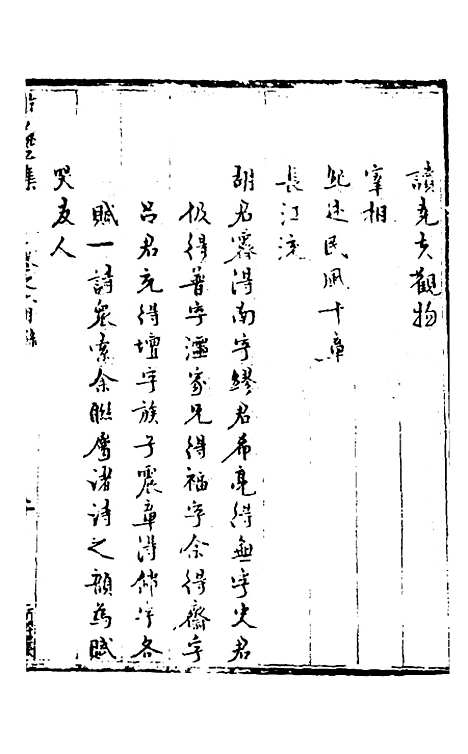 讀堯夫觀物
宰相
紀述民風十章
長江流
胡君霽得南字繆君希亮得無字史君
极得普字澐家兄得福字余得齋字
呂君充得壇字族子震章得作字各
賦一詩眾索余聯屬諸詩之韻為賦
哭友人
集 卷之 目錄